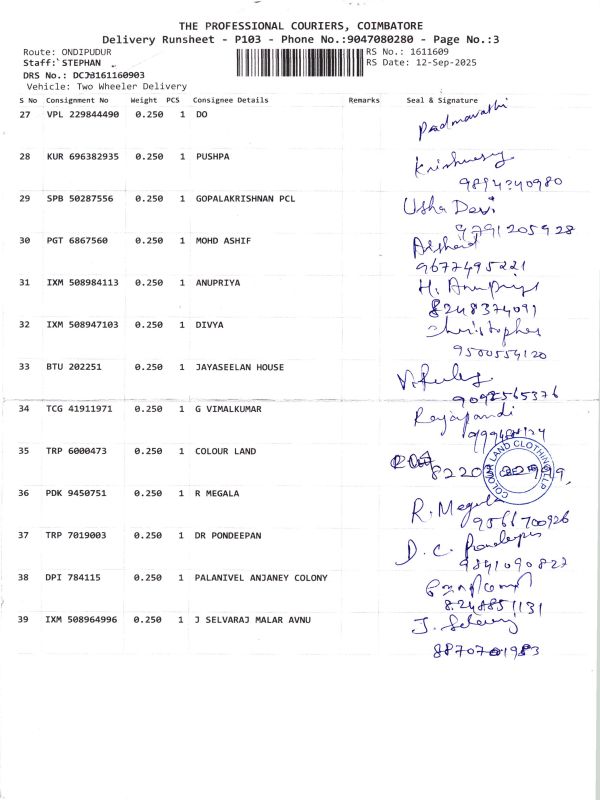 THE PROFESSIONAL COURIERS, COIMBATORE
Delivery Runsheet - P103 - Phone No.:9047080280 - Page No.:3
Route: ONDIPUDUR
RS No.: 1611609
Staff: STEPHAN
RS Date: 12-Sep-2025
DRS No.: DCJB161160903
Vehicle: Two Wheeler Delivery
S No Consignment No Weight PCS Consignee Details Remarks Seal & Signature
27 VPL 229844490 0.250 1 DO Padmavathi
28 KUR 696382935 0.250 1 PUSHPA
29 SPB 50287556 0.250 1 GOPALAKRISHNAN PCL Usha Devi
9791205928
30 PGT 6867560 0.250 1 MOHD ASHIF
9677495221
31 IXM 508984113 0.250 1 ANUPRIYA H. Anupriya
8248374091
32 IXM 508947103 0.250 1 DIVYA Christopher
9500554120
33 BTU 202251 0.250 1 JAYASEELAN HOUSE
9092565376
34 TCG 41911971 0.250 1 G VIMALKUMAR Rajapandi
35 TRP 6000473 0.250 1 COLOUR LAND
COLOUR LAND CLOTHING LLP
36 PDK 9450751 0.250 1 R MEGALA R. Megala
9566700926
37 TRP 7019003 0.250 1 DR PONDEEPAN D. C. Pondeepan
9841090827
38 DPI 784115 0.250 1 PALANIVEL ANJANEY COLONY
8248851131
39 IXM 508964996 0.250 1 J SELVARAJ MALAR AVNU J. Selvaraj